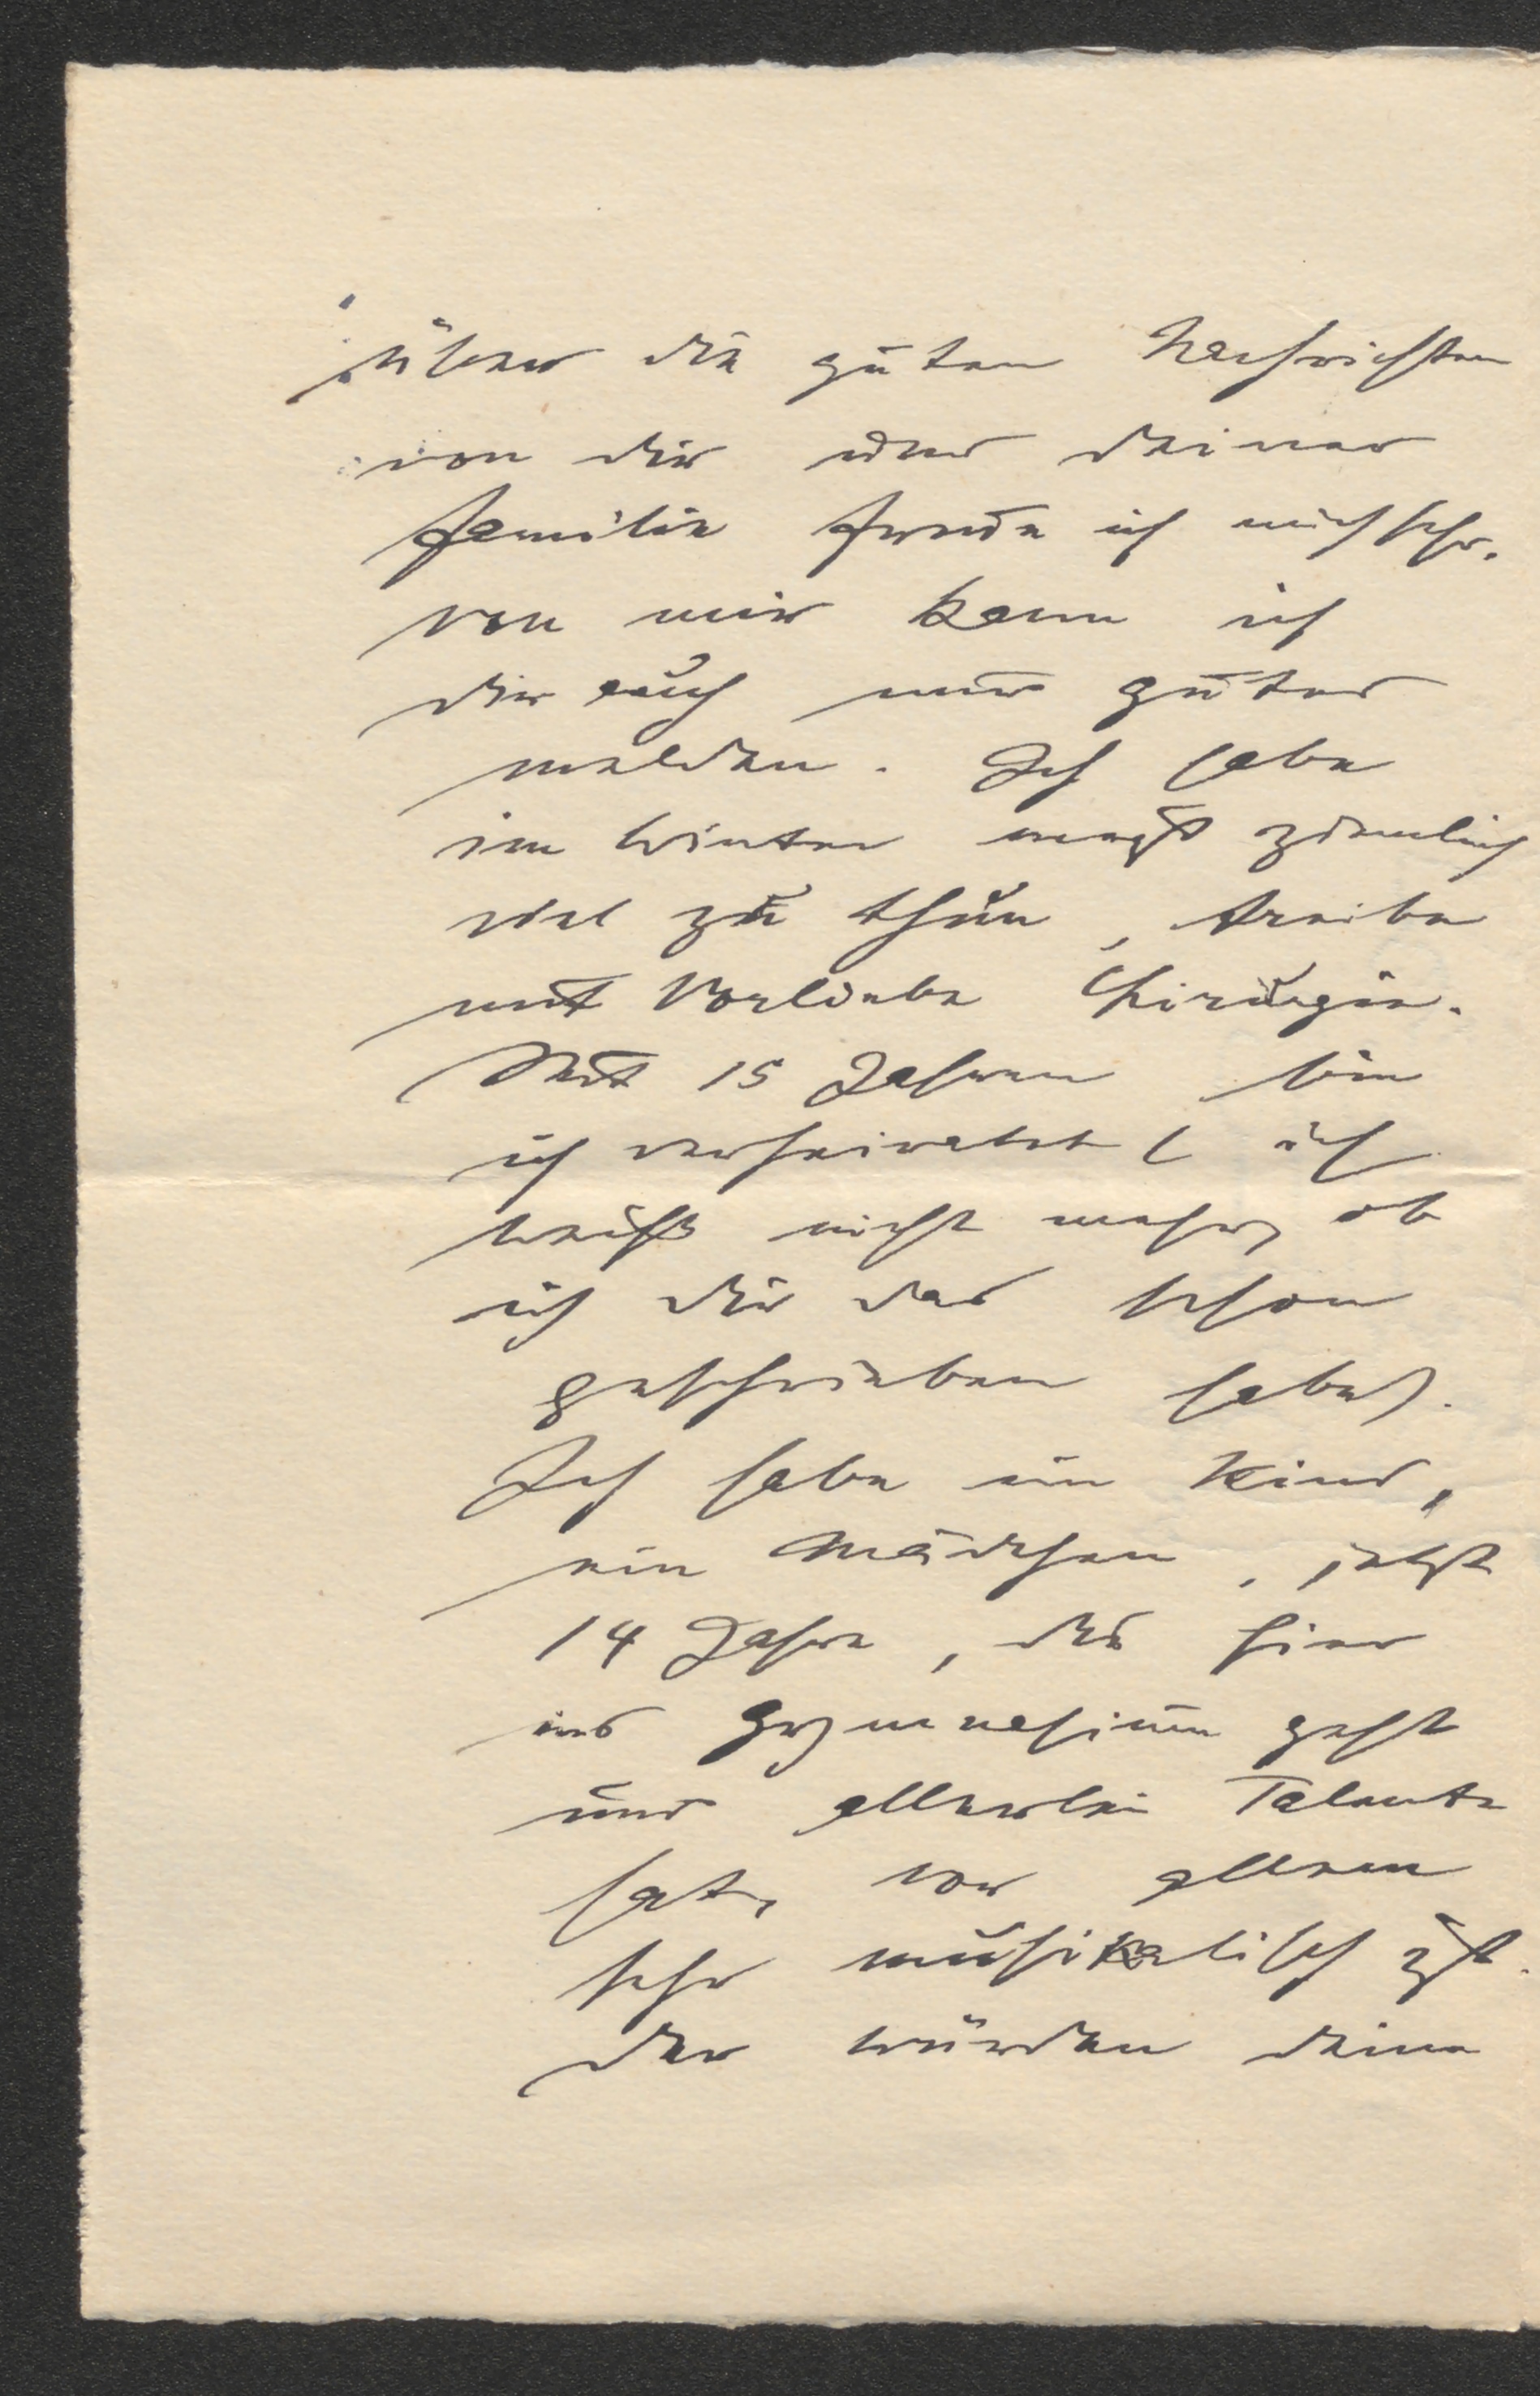 über die guten Nachrichten
von dir und deiner
Familie freue ich mich sehr.
von mir kann ich
dir auch nur gutes
melden. Ich habe
im Winter meist ziemlich
viel zu thun, treibe
mit Vorliebe Chirurgie.
Seit 15 Jahren bin
ich verheiratet (ich
weiß nicht mehr, ob
ich dir das schon
geschrieben habe).
Ich habe ein Kind,
ein Mädchen, jetzt
14 Jahre, die hier
ins Gymnasium geht
und allerlei Talente
hat, vor allem
sehr musikalisch ist.
der würden deine